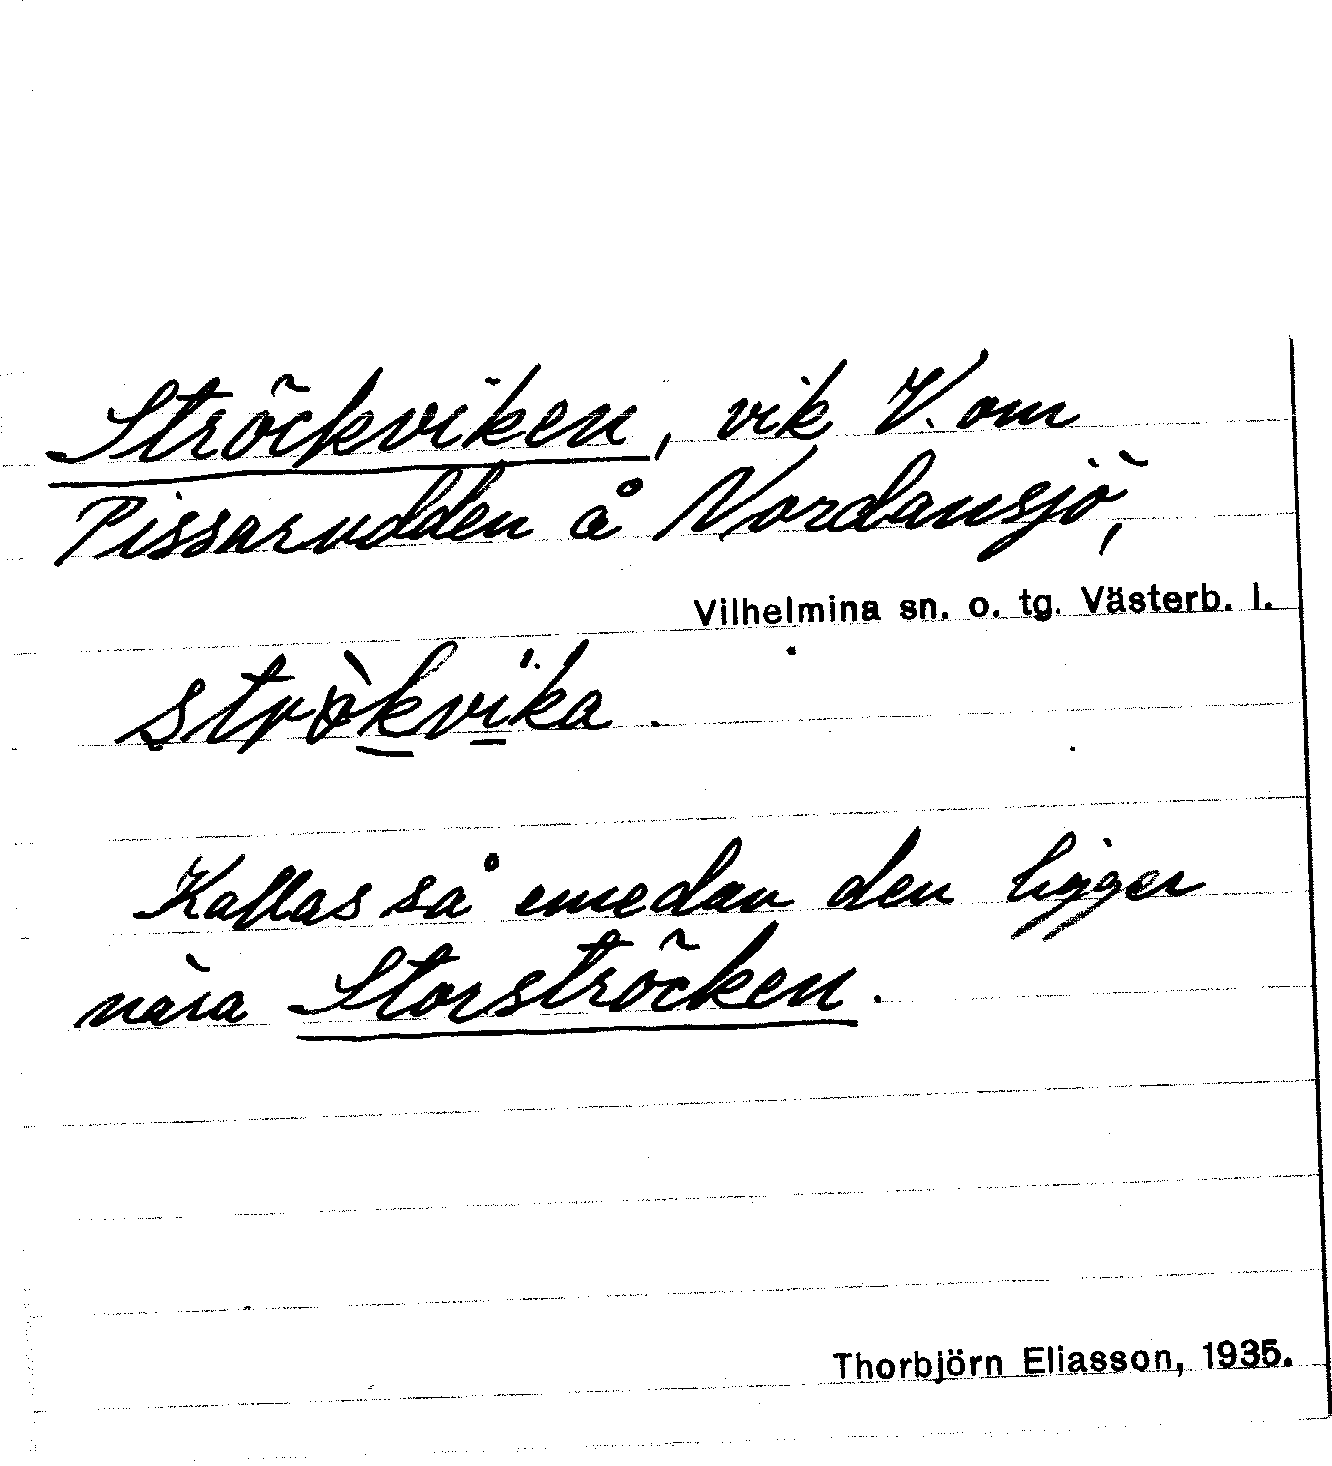 Ströckviken, vik V. om
Pissarudden å Nordansjö,
Vilhelmina sn. o. tg. Västerb. l.
Kallas så emedan den ligger
nära Storströcken.
Thorbjörn Eliasson, 1935.